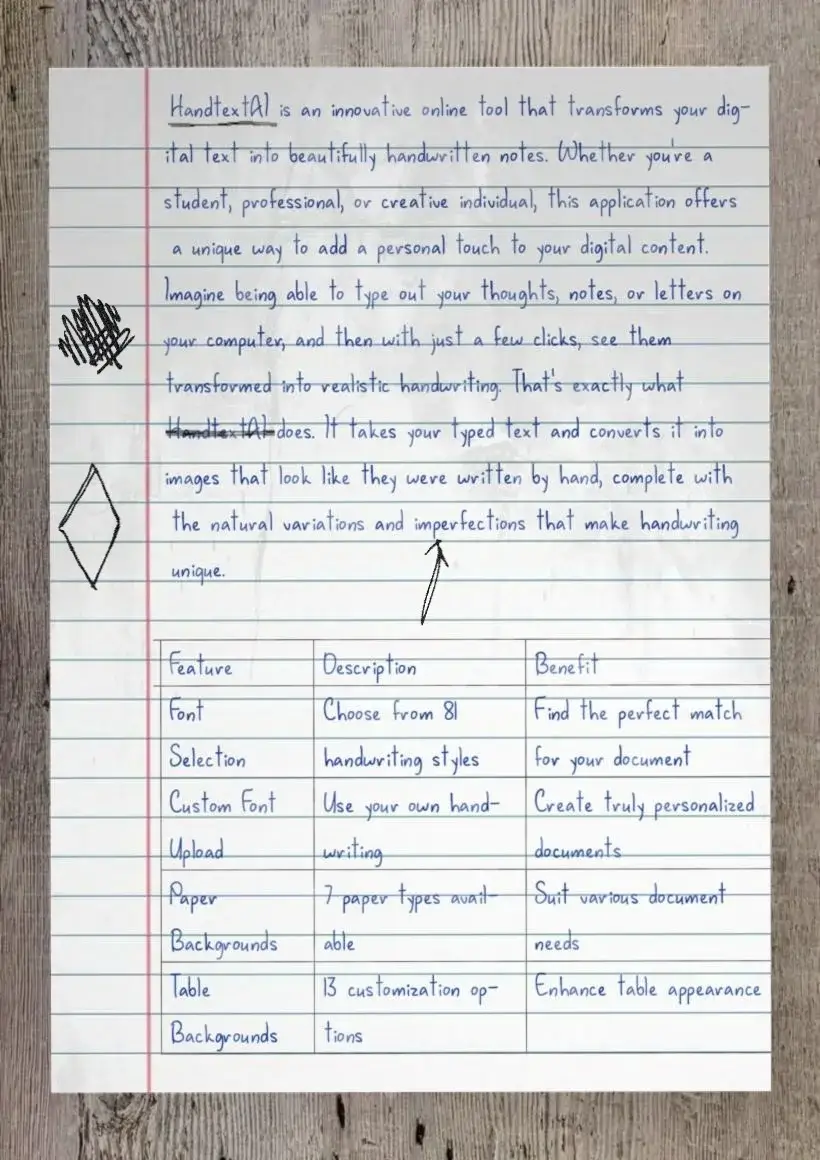 HandtextAI is an innovative online tool that transforms your dig-
ital text into beautifully handwritten notes. Whether you're a
student, professional, or creative individual, this application offers
a unique way to add a personal touch to your digital content.
Imagine being able to type out your thoughts, notes, or letters on
your computer, and then with just a few clicks, see them
transformed into realistic handwriting. That's exactly what
HandtextAI does. It takes your typed text and converts it into
images that look like they were written by hand, complete with
the natural variations and imperfections that make handwriting
unique.
Feature Description Benefit
Font Choose from 81 Find the perfect match
Selection handwriting styles for your document
Custom Font Use your own hand- Create truly personalized
Upload writing documents
Paper 7 paper types avail- Suit various document
Backgrounds able needs
Table 13 customization op- Enhance table appearance
Backgrounds tions